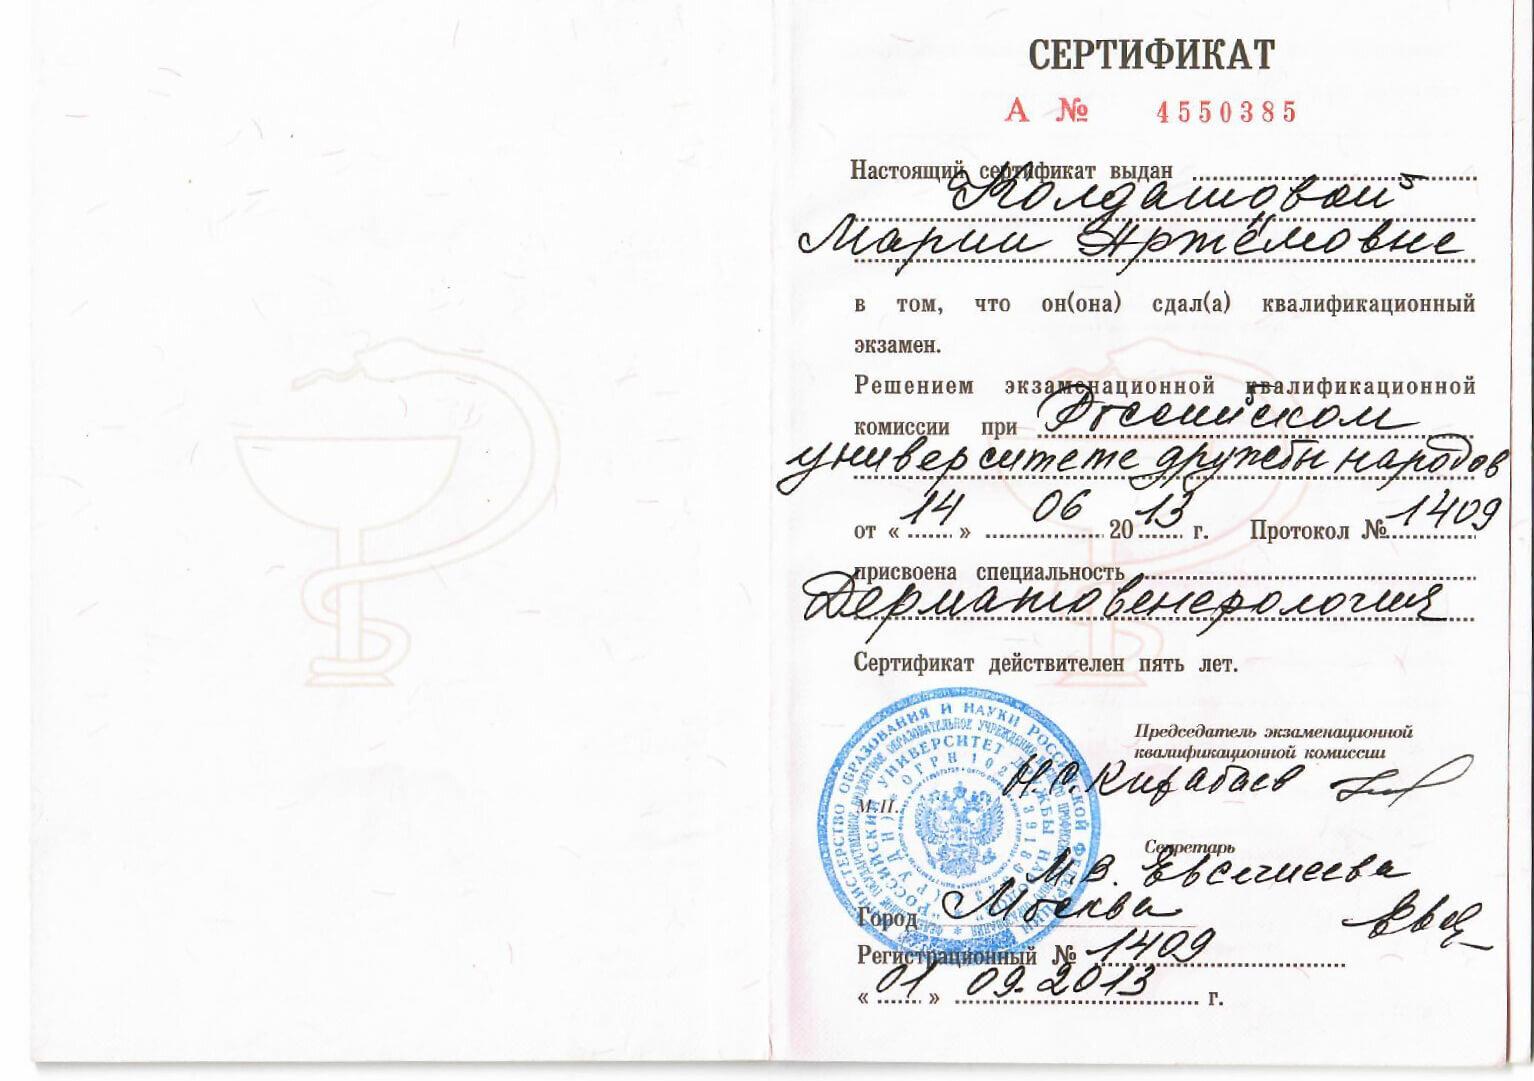 СЕРТИФИКАТ
А № 4550385
Настоящий сертификат выдан
Колдашовой
Марии Артёмовне
в том, что он(она) сдал(а) квалификационный
экзамен.
Решением экзаменационной квалификационной
комиссии при Российском
университете дружбы народов
от « 14 » 06 20 13 г. Протокол № 1409
присвоена специальность
Дерматовенерология
Сертификат действителен пять лет.
Председатель экзаменационной
квалификационной комиссии
Н.С. Кирабаев
М.П.
Секретарь
М.В. Евсечиева
Город Москва
Регистрационный № 1409
« 01 » 09.2013 г.
МИНИСТЕРСТВО ОБРАЗОВАНИЯ И НАУКИ РОССИЙСКОЙ ФЕДЕРАЦИИ
"РОССИЙСКИЙ УНИВЕРСИТЕТ ДРУЖБЫ НАРОДОВ"
(РУДН)